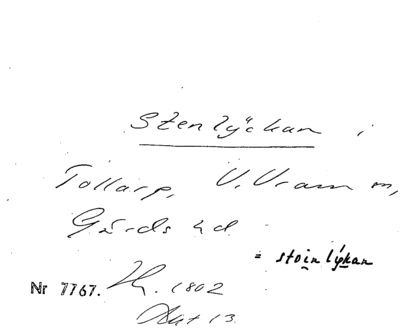 Stenlyckan i
Tollarp, V. Vram sn,
Gärds hd
= stoinlýkan
Nr 7767. 1802
Akt 13